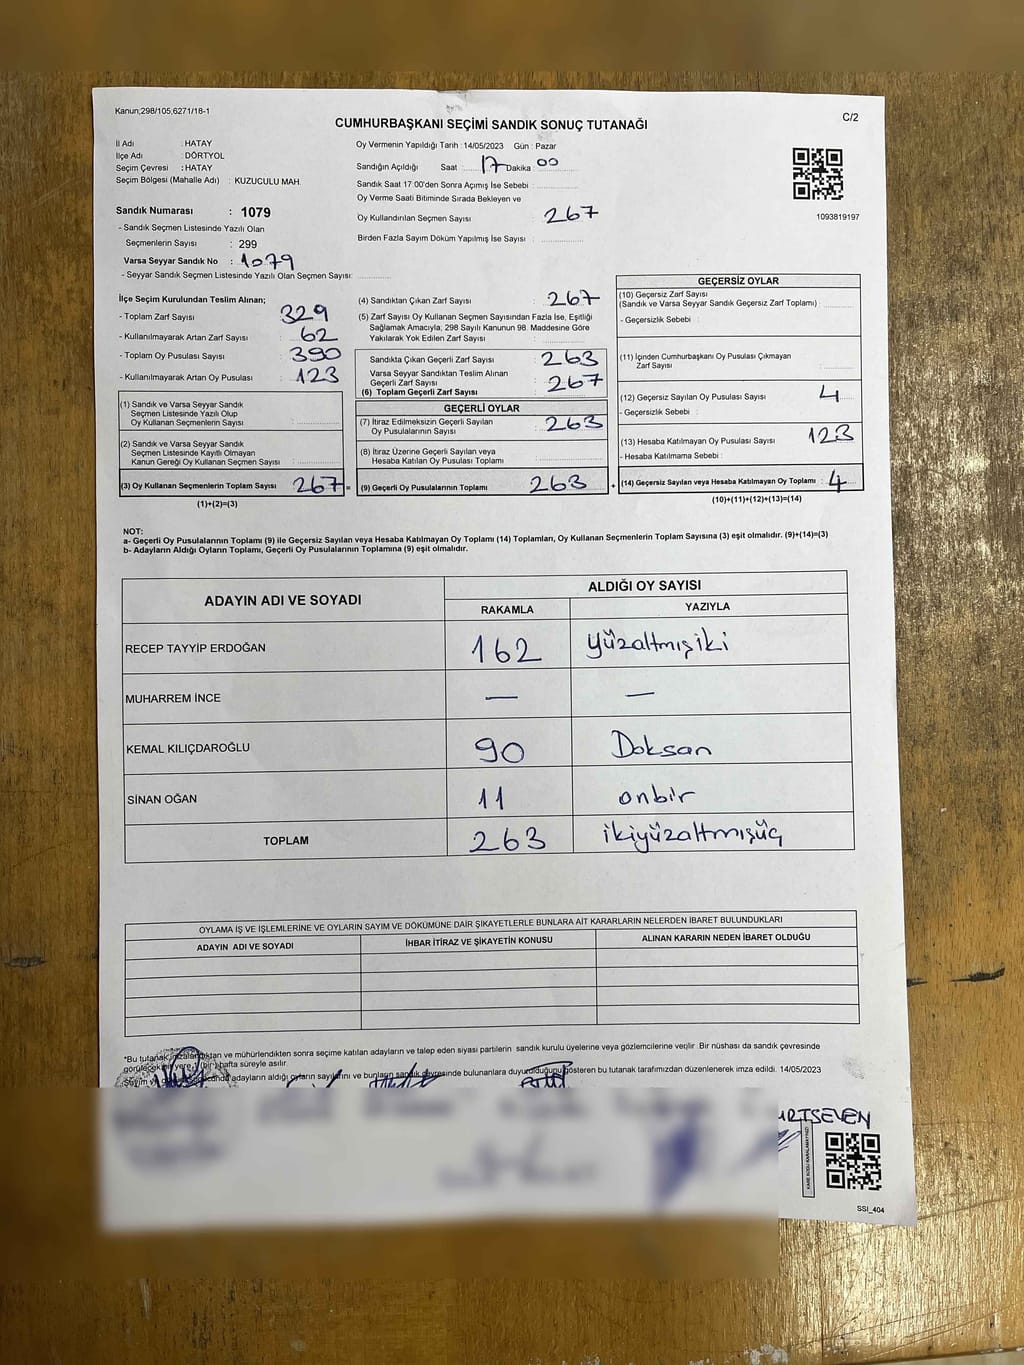 Kanun;298/105;6271/18-1
C/2
CUMHURBAŞKANI SEÇİMİ SANDIK SONUÇ TUTANAĞI
İl Adı : HATAY
İlçe Adı : DÖRTYOL
Seçim Çevresi : HATAY
Seçim Bölgesi (Mahalle Adı) : KUZUCULU MAH.
Oy Vermenin Yapıldığı Tarih : 14/05/2023 Gün : Pazar
Sandığın Açıldığı Saat : 17 Dakika 00
Sandık Saat 17:00'den Sonra Açımış İse Sebebi :
Oy Verme Saati Bitiminde Sırada Bekleyen ve
Oy Kullandırılan Seçmen Sayısı : 267
Birden Fazla Sayım Döküm Yapılmış İse Sayısı :
1093819197
Sandık Numarası : 1079
- Sandık Seçmen Listesinde Yazılı Olan
Seçmenlerin Sayısı : 299
Varsa Seyyar Sandık No : 1079
- Seyyar Sandık Seçmen Listesinde Yazılı Olan Seçmen Sayısı:
İlçe Seçim Kurulundan Teslim Alınan;
- Toplam Zarf Sayısı : 329
- Kullanılmayarak Artan Zarf Sayısı : 62
- Toplam Oy Pusulası Sayısı : 390
- Kullanılmayarak Artan Oy Pusulası : 123
(1) Sandık ve Varsa Seyyar Sandık
Seçmen Listesinde Yazılı Olup
Oy Kullanan Seçmenlerin Sayısı :
(2) Sandık ve Varsa Seyyar Sandık
Seçmen Listesinde Kayıtlı Olmayan
Kanun Gereği Oy Kullanan Seçmen Sayısı :
(3) Oy Kullanan Seçmenlerin Toplam Sayısı 267 =
(1)+(2)=(3)
(4) Sandıktan Çıkan Zarf Sayısı : 267
(5) Zarf Sayısı Oy Kullanan Seçmen Sayısından Fazla İse, Eşitliği
Sağlamak Amacıyla; 298 Sayılı Kanunun 98. Maddesine Göre
Yakılarak Yok Edilen Zarf Sayısı :
Sandıkta Çıkan Geçerli Zarf Sayısı : 263
Varsa Seyyar Sandıktan Teslim Alınan
Geçerli Zarf Sayısı : 267
(6) Toplam Geçerli Zarf Sayısı :
GEÇERLİ OYLAR
(7) İtiraz Edilmeksizin Geçerli Sayılan
Oy Pusulalarının Sayısı : 263
(8) İtiraz Üzerine Geçerli Sayılan veya
Hesaba Katılan Oy Pusulası Toplamı :
(9) Geçerli Oy Pusulalarının Toplamı : 263 +
GEÇERSİZ OYLAR
(10) Geçersiz Zarf Sayısı
(Sandık ve Varsa Seyyar Sandık Geçersiz Zarf Toplamı) :
- Geçersizlik Sebebi :
(11) İçinden Cumhurbaşkanı Oy Pusulası Çıkmayan
Zarf Sayısı :
(12) Geçersiz Sayılan Oy Pusulası Sayısı : 4
- Geçersizlik Sebebi :
(13) Hesaba Katılmayan Oy Pusulası Sayısı : 123
- Hesaba Katılmama Sebebi :
(14) Geçersiz Sayılan veya Hesaba Katılmayan Oy Toplamı : 4
(10)+(11)+(12)+(13)=(14)
NOT:
a- Geçerli Oy Pusulalarının Toplamı (9) ile Geçersiz Sayılan veya Hesaba Katılmayan Oy Toplamı (14) Toplamları, Oy Kullanan Seçmenlerin Toplam Sayısına (3) eşit olmalıdır. (9)+(14)=(3)
b- Adayların Aldığı Oyların Toplamı, Geçerli Oy Pusulalarının Toplamına (9) eşit olmalıdır.
ADAYIN ADI VE SOYADI ALDIĞI OY SAYISI
RAKAMLA YAZIYLA
RECEP TAYYİP ERDOĞAN 162 Yüzaltmışiki
MUHARREM İNCE — —
KEMAL KILIÇDAROĞLU 90 Doksan
SİNAN OĞAN 11 onbir
TOPLAM 263 ikiyüzaltmışüç
OYLAMA İŞ VE İŞLEMLERİNE VE OYLARIN SAYIM VE DÖKÜMÜNE DAİR ŞİKAYETLERLE BUNLARA AİT KARARLARIN NELERDEN İBARET BULUNDUKLARI
ADAYIN ADI VE SOYADI İHBAR İTİRAZ VE ŞİKAYETİN KONUSU ALINAN KARARIN NEDEN İBARET OLDUĞU
*Bu tutanak imzalandıktan ve mühürlendikten sonra seçime katılan adayların ve talep eden siyasi partilerin sandık kurulu üyelerine veya gözlemcilerine verilir. Bir nüshası da sandık çevresinde
görülecek bir yere 1 (bir) hafta süreyle asılır.
Sayım ve adayların aldığı oyların sayılarını ve bunların sandık çevresinde bulunanlara duyurulduğunu gösteren bu tutanak tarafımızdan düzenlenerek imza edildi. 14/05/2023
URTSEVEN
KARE KODU KARALAMAYINIZ!
SSI_404